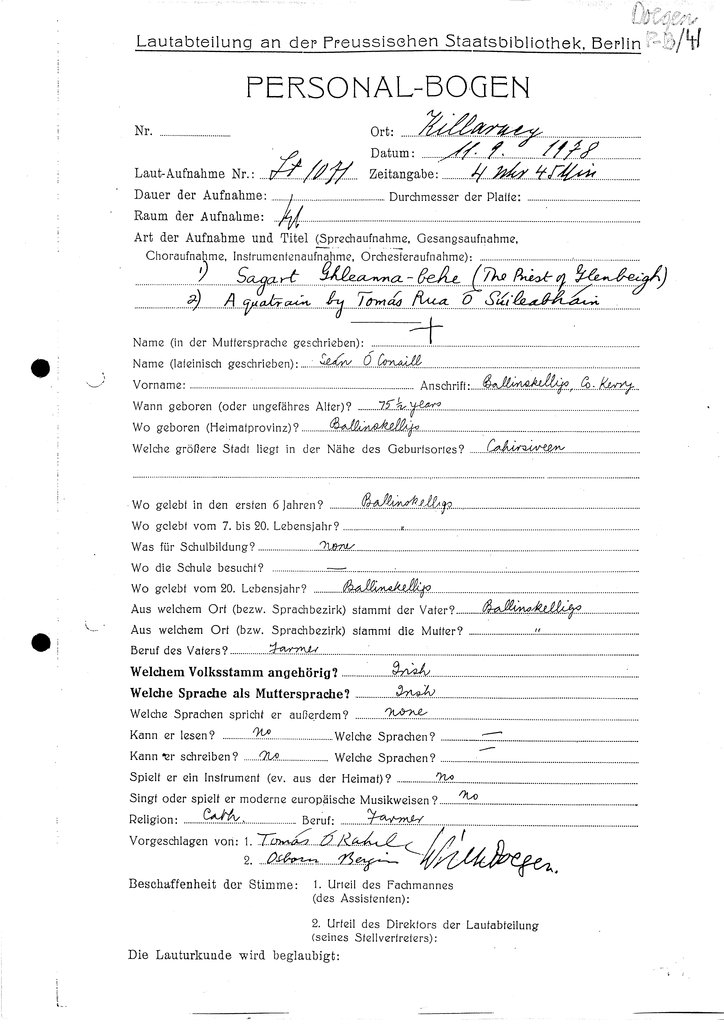 Doegen
Lautabteilung an der Preussischen Staatsbibliothek, Berlin
PERSONAL-BOGEN
Nr.
Ort: Killarney
Datum: 11. 9. 1928
Laut-Aufnahme Nr.: Zeitangabe: 4 Uhr 45 Min
Dauer der Aufnahme: Durchmesser der Platte:
Raum der Aufnahme:
Art der Aufnahme und Titel (Sprechaufnahme, Gesangsaufnahme,
Choraufnahme, Instrumentenaufnahme, Orchesteraufnahme):
1) Sagart Ghleanna-behe (The Priest of Glenbeigh)
2) A quatrain by Tomás Rua Ó Súileabháin
Name (in der Muttersprache geschrieben):
Name (lateinisch geschrieben): Seán Ó Conaill
Vorname: Anschrift: Ballinskelligs, Co. Kerry
Wann geboren (oder ungefähres Alter)? 75½ years
Wo geboren (Heimatprovinz)? Ballinskelligs
Welche größere Stadt liegt in der Nähe des Geburtsortes? Cahirsiveen
Wo gelebt in den ersten 6 Jahren? Ballinskelligs
Wo gelebt vom 7. bis 20. Lebensjahr? "
Was für Schulbildung? none
Wo die Schule besucht? —
Wo gelebt vom 20. Lebensjahr? Ballinskelligs
Aus welchem Ort (bezw. Sprachbezirk) stammt der Vater? Ballinskelligs
Aus welchem Ort (bezw. Sprachbezirk) stammt die Mutter? "
Beruf des Vaters? Farmer
Welchem Volksstamm angehörig? Irish
Welche Sprache als Muttersprache? Irish
Welche Sprachen spricht er außerdem? none
Kann er lesen? No Welche Sprachen? —
Kann er schreiben? No Welche Sprachen? —
Spielt er ein Instrument (ev. aus der Heimat)? No
Singt oder spielt er moderne europäische Musikweisen? No
Religion: Cath. Beruf: Farmer
Vorgeschlagen von: 1. Tomás Ó Rahille
2. Osborn Bergin Wilh Doegen.
Beschaffenheit der Stimme: 1. Urteil des Fachmannes
(des Assistenten):
2. Urteil des Direktors der Lautabteilung
(seines Stellvertreters):
Die Lauturkunde wird beglaubigt: